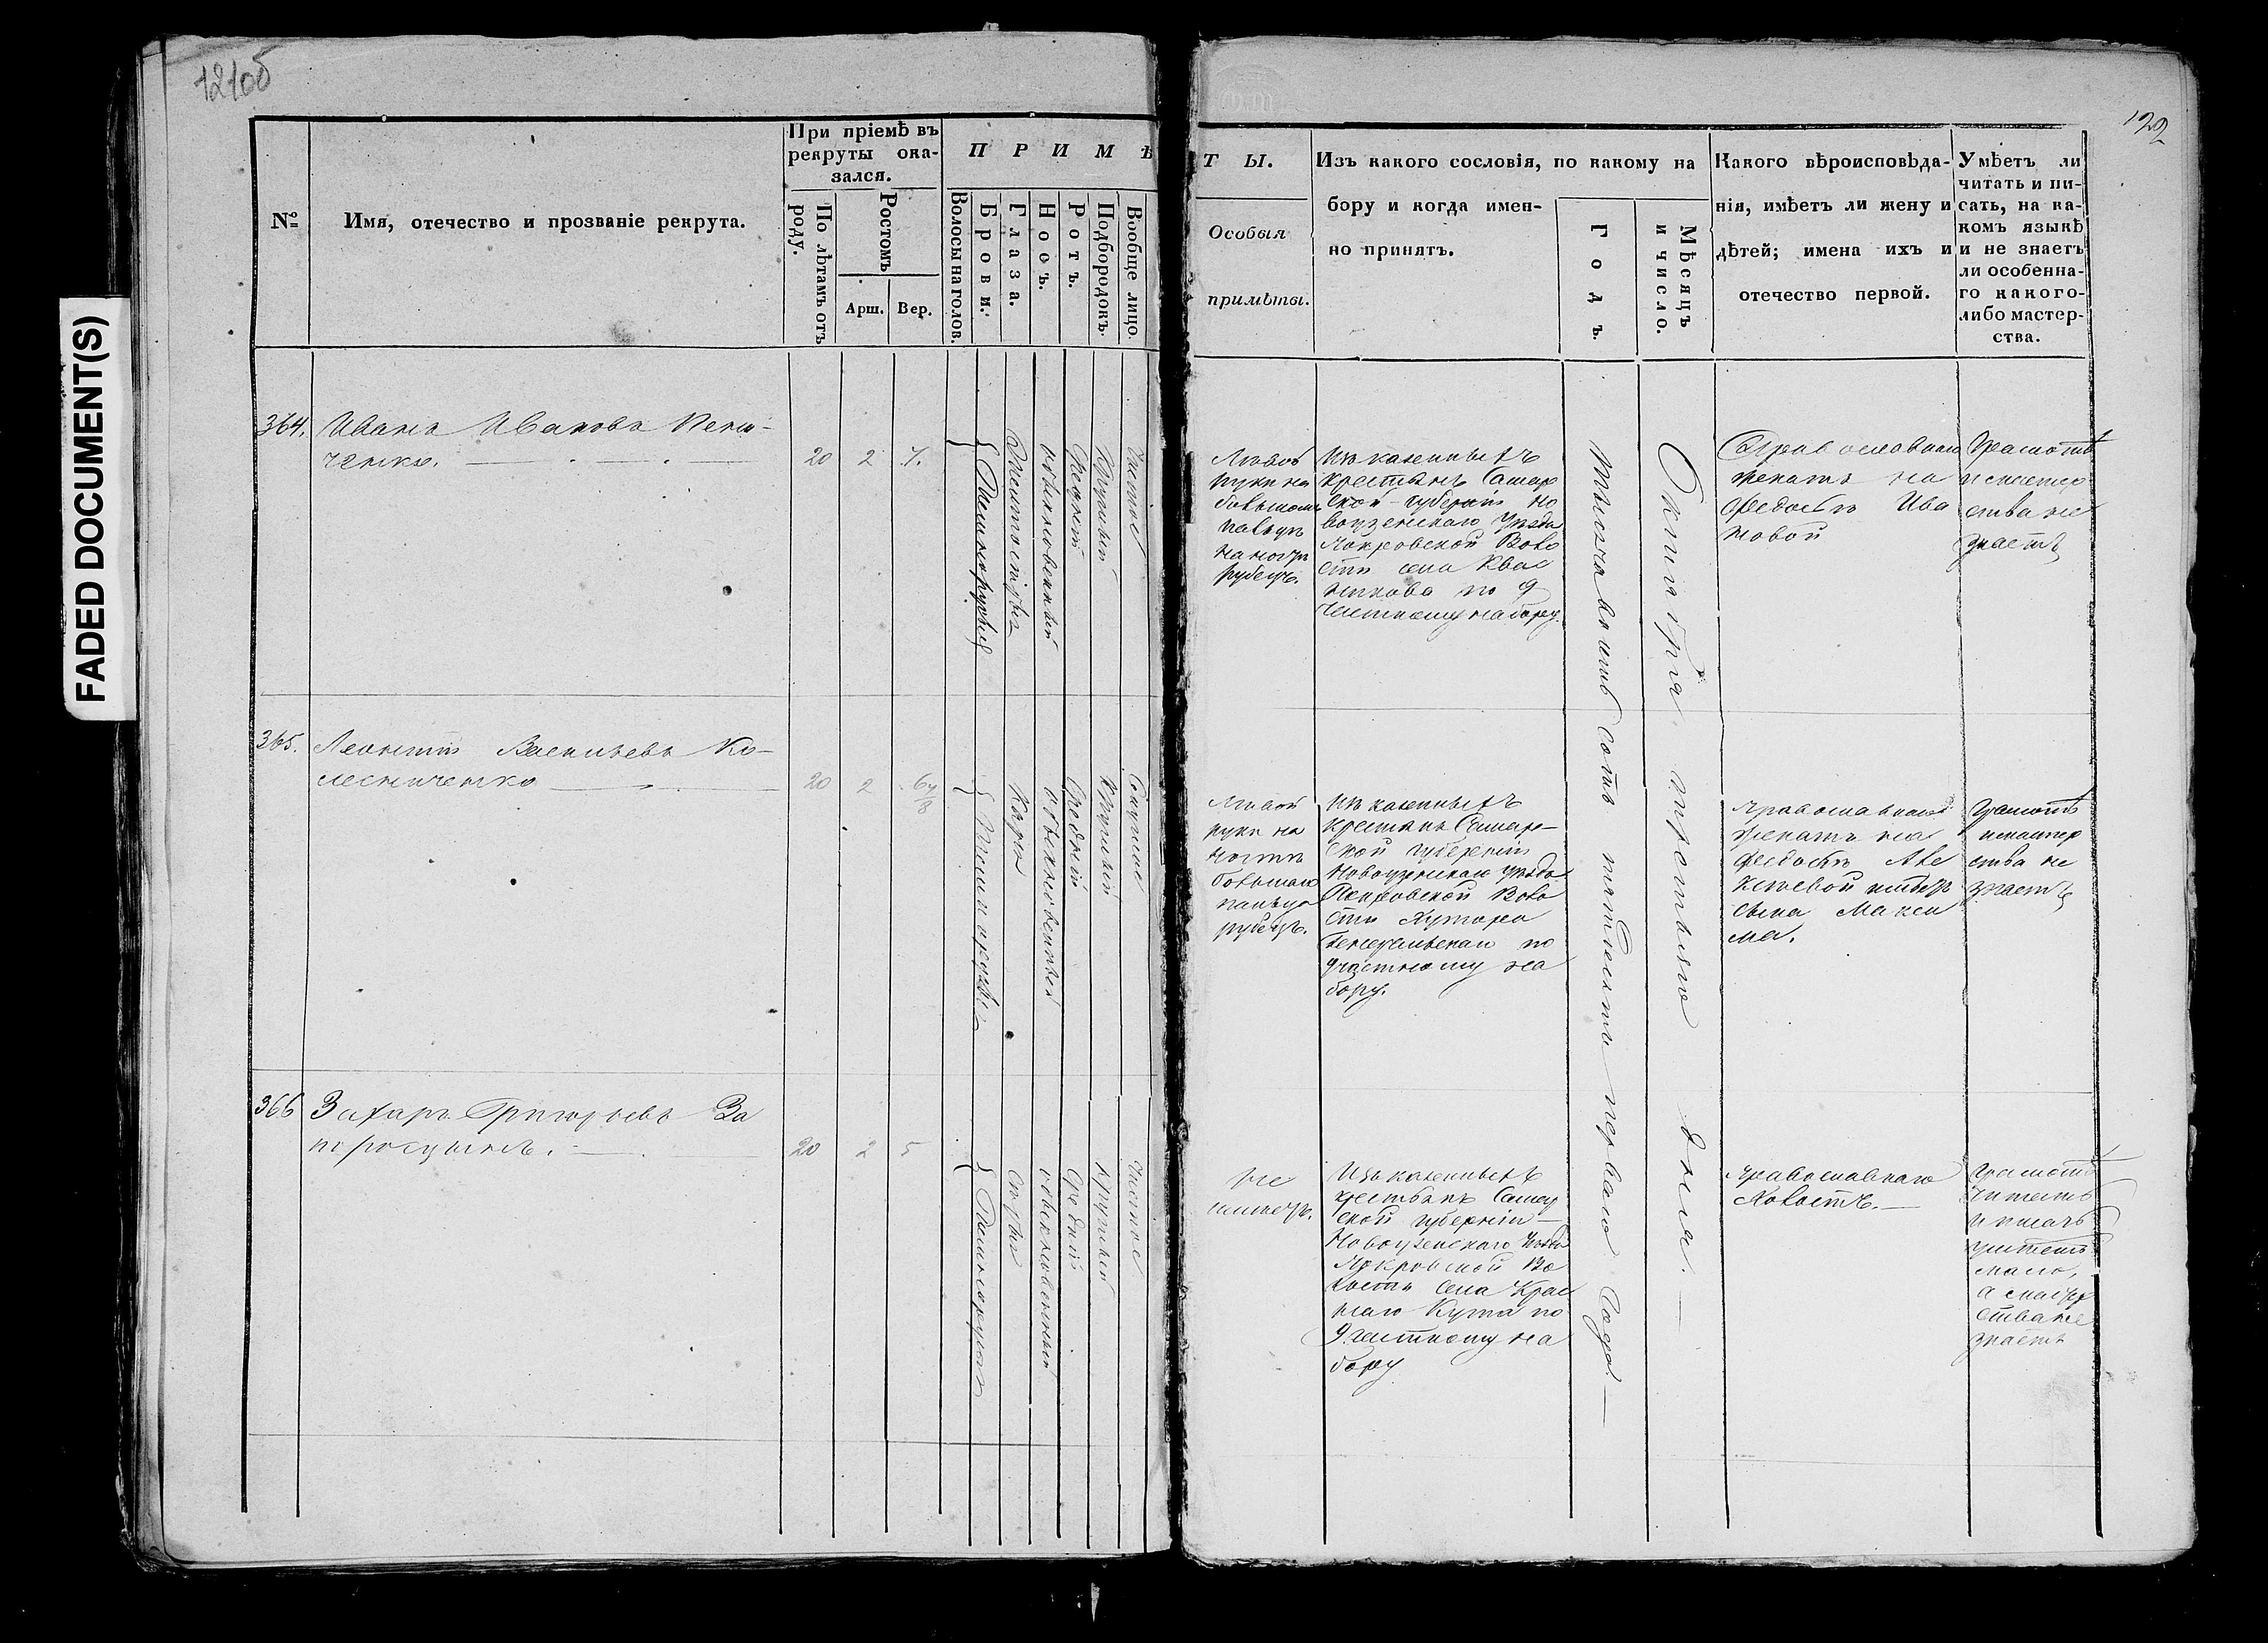 FADED DOCUMENT(S)
121об
122
№
Имя, отечество и прозваніе рекрута.
При пріемѣ въ
рекруты ока-
зался.
По лѣтамъ отъ
роду.
Ростомъ
Арш.
Вер.
П Р И М Ѣ
Волосы на голов.
Брови.
Глаза.
Носъ.
Ротъ.
Подбородокъ.
Вообще лицо.
Т Ы.
Особыя
примѣты.
Изъ какого сословія, по какому на
бору и когда имен-
но принятъ.
Годъ.
Мѣсяцъ
и число.
Какого вѣроисповѣда-
нія, имѣетъ ли жену и
дѣтей; имена ихъ и
отечество первой.
Умѣетъ ли
читать и пи-
сать, на ка-
комъ языкѣ
и не знаетъ
ли особенна-
го какого-
либо мастер-
ства.
364.
Иванъ Ивановъ
ченко.
20
2
7.
Темнорусыя
обыкновенный
средній
круглый
чистое
Лѣвой
руки на
большомъ
пальцѣ
рубецъ.
Изъ казенныхъ
крестьянъ Самар
ской губерніи Но
воузенскаго Уѣзда
Покровской Воло
сти села Квас
никова по 9
частному набору.
Тысяча восемь сотъ пятьдесятъ перваго года.
Октября третьяго дня.
Православнаго
женатъ на
Федосьѣ Ива
новой
Грамотѣ
и мастер
ства не
знаетъ
365.
Леонтій Васильевъ Ко-
лесниченко
20
2
6 7/8
Каріе
обыкновенный
средній
круглый
Лѣвой
руки на
ногтѣ
большаго
пальца
рубецъ.
Изъ казенныхъ
крестьянъ Самар-
ской губерніи
Новоузенскаго Уѣзда
Покровской Воло
сти Хутора
по
9 частному на
бору.
Православнаго
женатъ на
Федосьѣ Але
ксѣевой имѣетъ
сына Макси
ма.
Грамотѣ
и мастер
ства не
знаетъ
366
Захаръ Григорьевъ За
порожцевъ.
20
2
5
Темнорусые
Сѣрые
обыкновенный
средній
круглый
чистое
не
имѣетъ.
Изъ казенныхъ
крестьянъ Самар
ской губерніи
Новоузенскаго Уѣзда
Покровской Во
лости села Крас
наго Кута по
9 частному на
бору
Православнаго
Холостъ.
Грамотѣ
читать
и писать
умѣетъ
мало,
а мастер
ства не
знаетъ